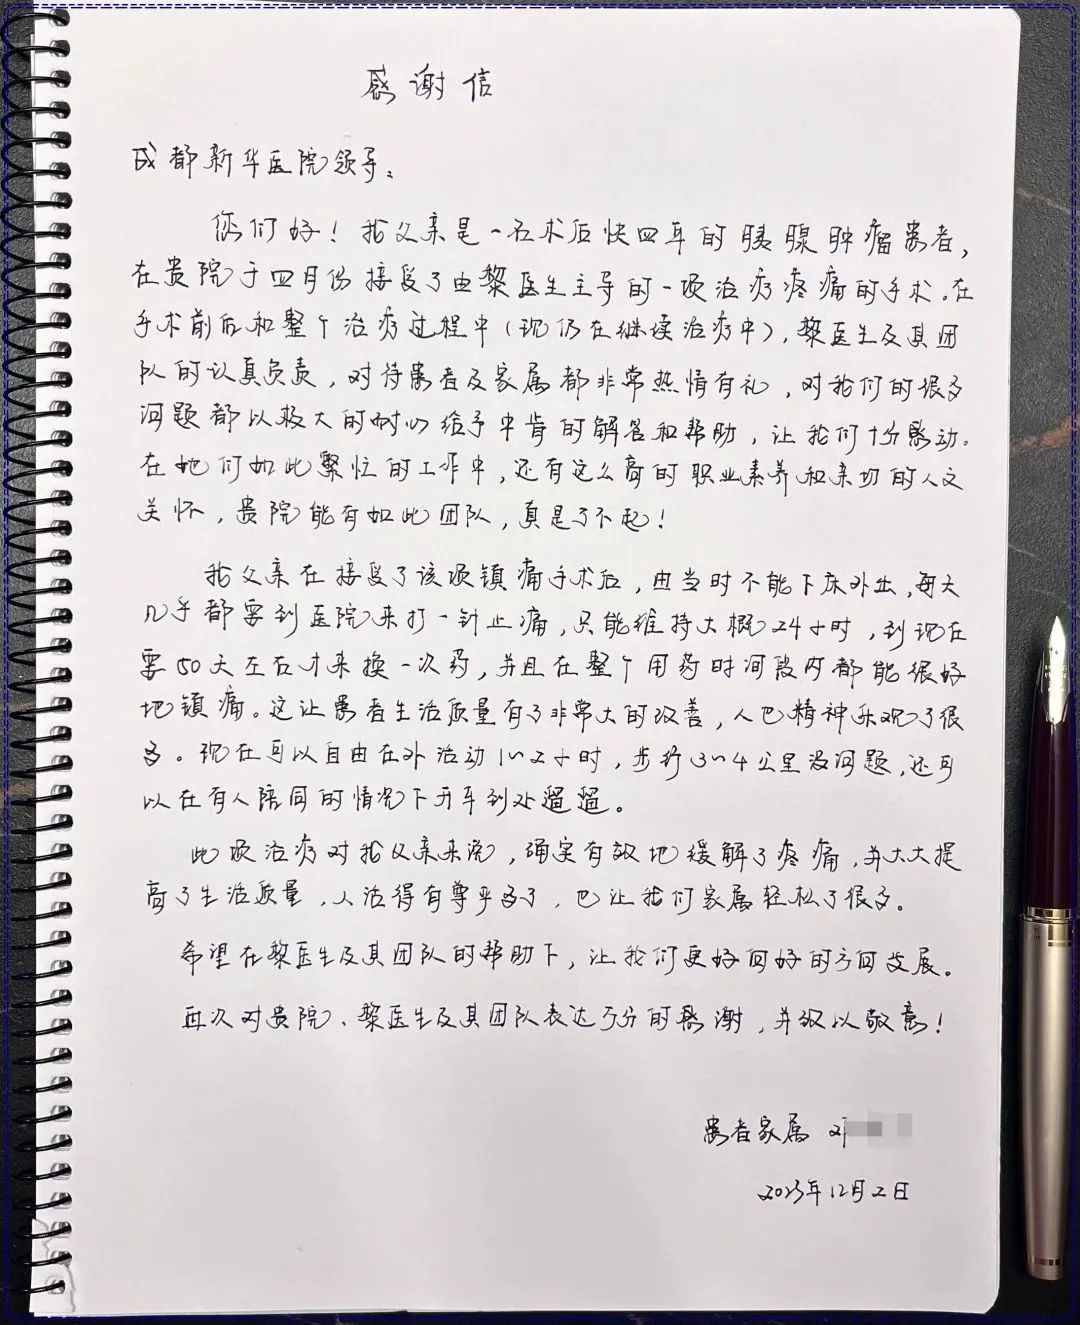 感谢信
成都新华医院领导:
您们好！我父亲是一名术后快四年的胰腺肿瘤患者,
在贵院于四月份接受了由黎医生主导的一项治疗疼痛的手术.在
手术前后和整个治疗过程中(现仍在继续治疗中),黎医生及其团
队的认真负责,对待患者及家属都非常热情有礼,对我们的很多
问题都以极大的耐心给予中肯的解答和帮助,让我们十分感动。
在她们如此繁忙的工作中,还有这么高的职业素养和亲切的人文
关怀,贵院能有如此团队,真是了不起!
我父亲在接受了该项镇痛手术后,由当时不能下床外出,每天
几乎都要到医院来打一针止痛,只能维持大概24小时,到现在
要50天左右才来换一次药,并且在整个用药时间段内都能很好
地镇痛。这让患者生活质量有了非常大的改善,人也精神乐观了很
多。现在可以自由在外活动1~2小时,步行3~4公里没问题,还可
以在有人陪同的情况下开车到处遛遛。
此项治疗对我父亲来说,确实有效地缓解了疼痛,并大大提
高了生活质量,人活得有尊严多了,也让我们家属轻松了很多。
希望在黎医生及其团队的帮助下,让我们更好向好的方向发展。
再次对贵院、黎医生及其团队表达万分的感谢,并致以敬意!
患者家属 邓
2023年12月2日